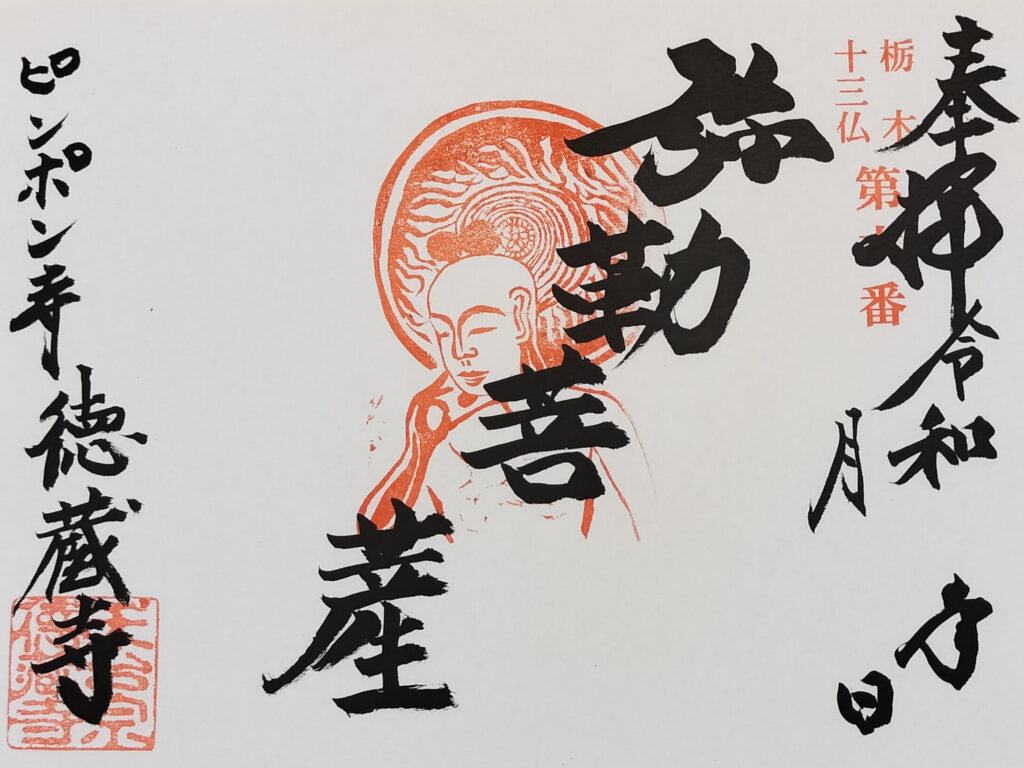 奉拝 令和 年
月 日
栃木
十三仏
第 番
弥勒菩薩
ピンポン寺 徳蔵寺